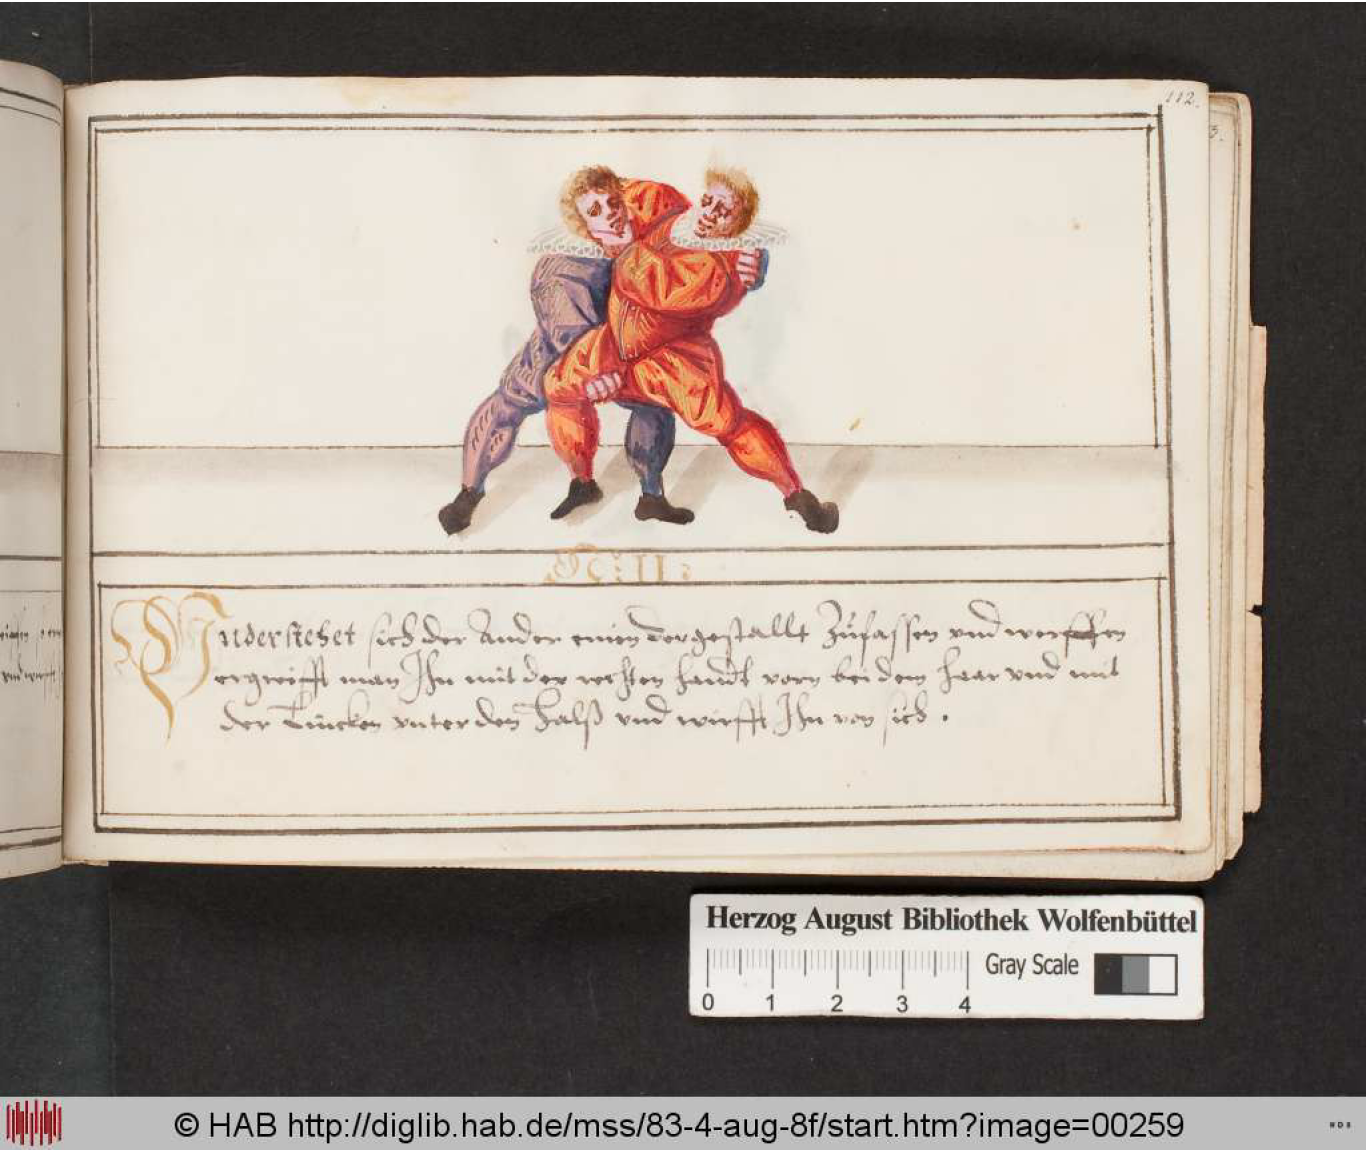 112.
3.
Vnderstehet sich der Ander einen dergestallt Zufassen vnd werffen
ergreifft man Ihn mit der rechten handt vorn bei dem haar vnd mit
der Lincken vnter den Halß vnd wirfft Ihn von sich .
Herzog August Bibliothek Wolfenbüttel
Gray Scale
0 1 2 3 4
© HAB http://diglib.hab.de/mss/83-4-aug-8f/start.htm?image=00259